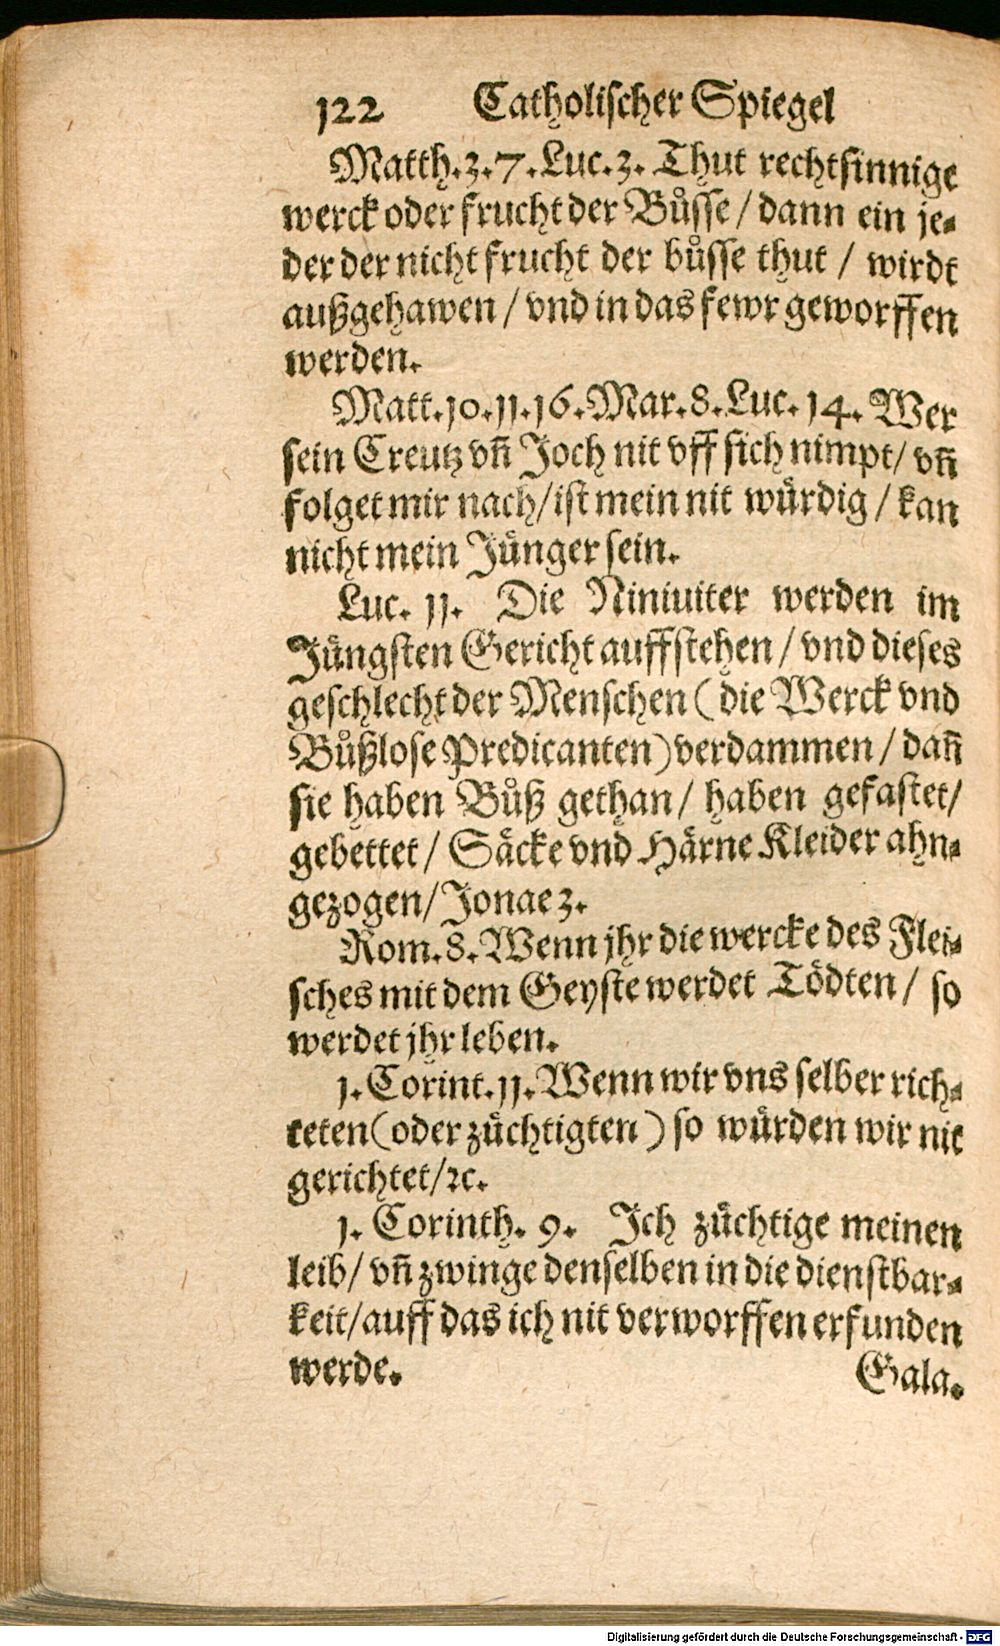 122 Catholischer Spiegel
Matth.3.7.Luc.3. Thut rechtsinnige
werck oder frucht der Bůsse / dann ein je⸗
der der nicht frucht der bůsse thut / wirdt
außgehawen / vnd in das fewr geworffen
werden.
Matt.10.11.16.Mar.8.Luc.14. Wer
sein Creutz vñ Joch nit vff sich nimpt/ vñ
folget mir nach/ist mein nit würdig / kan
nicht mein Jünger sein.
Luc. 11. Die Niniuiter werden im
Jüngsten Gericht auffstehen / vnd dieses
geschlecht der Menschen ( die Werck vnd
Bůßlose Predicanten) verdammen / dañ
sie haben Bůß gethan / haben gefastet/
gebettet / Säcke vnd Härne Kleider ahn⸗
gezogen/ Jonae 3.
Rom.8. Wenn jhr die wercke des Flei⸗
sches mit dem Geyste werdet Tödten / so
werdet jhr leben.
1. Corint.11. Wenn wir vns selber rich⸗
teten (oder züchtigten ) so würden wir nit
gerichtet/ꝛc.
1. Corinth. 9. Ich züchtige meinen
leib/ vñ zwinge denselben in die dienstbar⸗
keit/auff das ich nit verworffen erfunden
werde. Gala.
Digitalisierung gefördert durch die Deutsche Forschungsgemeinschaft - DFG